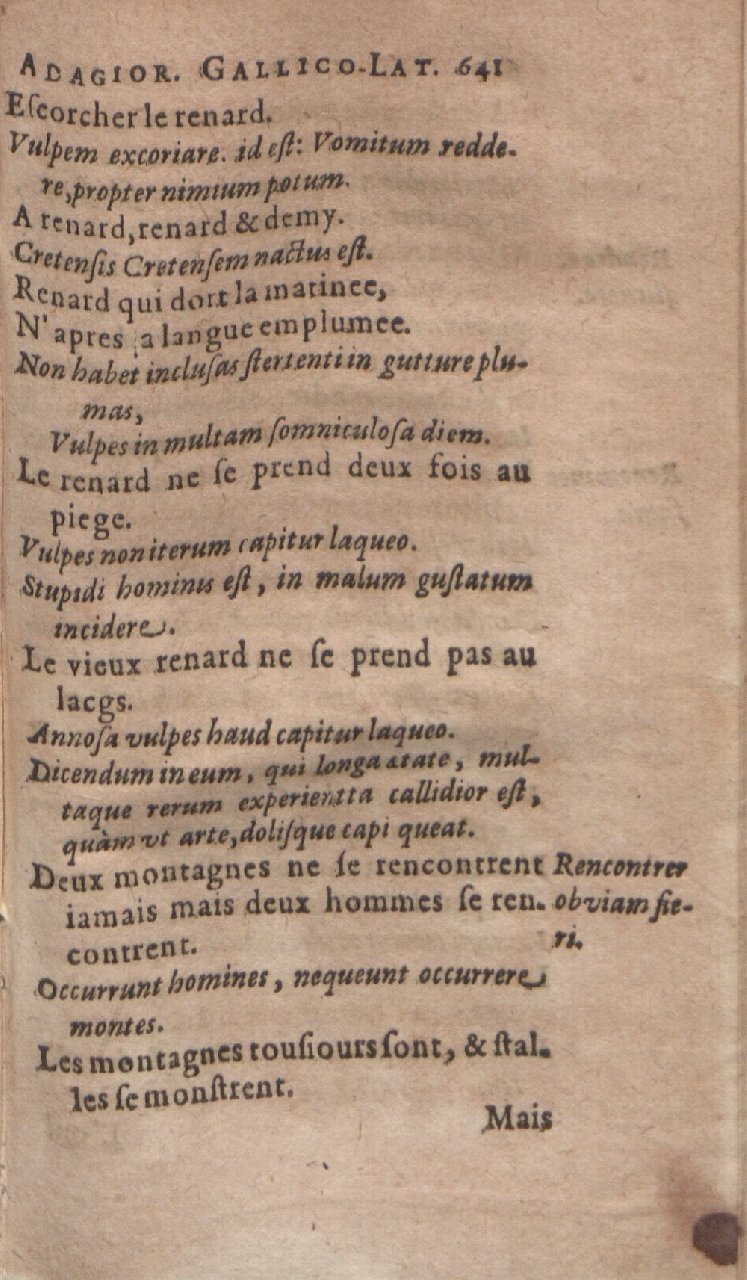 ADAGIOR. GALLICO-LAT. 641
Eſcorcher le renard.
Vulpem excoriare. id eſt: Vomitum redde-
re, propter nimium potum.
A renard, renard & demy.
Cretenſis Cretenſem nactus eſt.
Renard qui dort la matinee,
N'apres ſa langue emplumee.
Non habet incluſas ſtertenti in gutture plu-
mas,
Vulpes in multam ſomniculoſa diem.
Le renard ne ſe prend deux fois au
piege.
Vulpes non iterum capitur laqueo.
Stupidi hominis eſt, in malum guſtatum
incidere.
Le vieux renard ne ſe prend pas au
lacgs.
Annoſa vulpes haud capitur laqueo.
Dicendum in eum, qui longa ætate, mul-
taque rerum experientia callidior eſt,
quàm vt arte, doliſque capi queat.
Deux montagnes ne ſe rencontrent Rencontrer
iamais mais deux hommes ſe ren- obviam fie-
contrent. ri.
Occurrunt homines, nequeunt occurrere
montes.
Les montagnes touſiours ſont, & ſtal-
les ſe monſtrent.
Mais